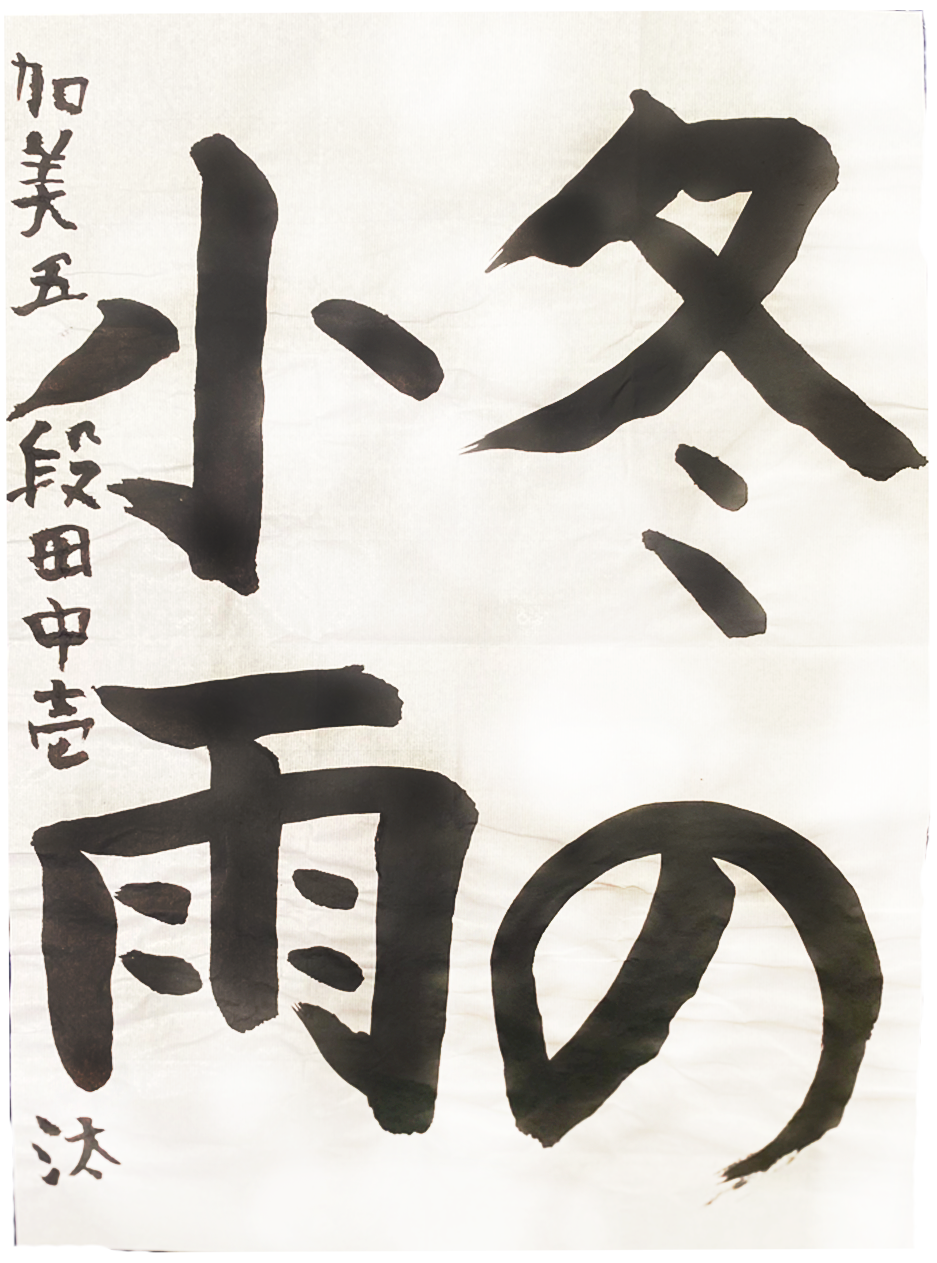 冬の
小雨
加美五 段田中壱汰